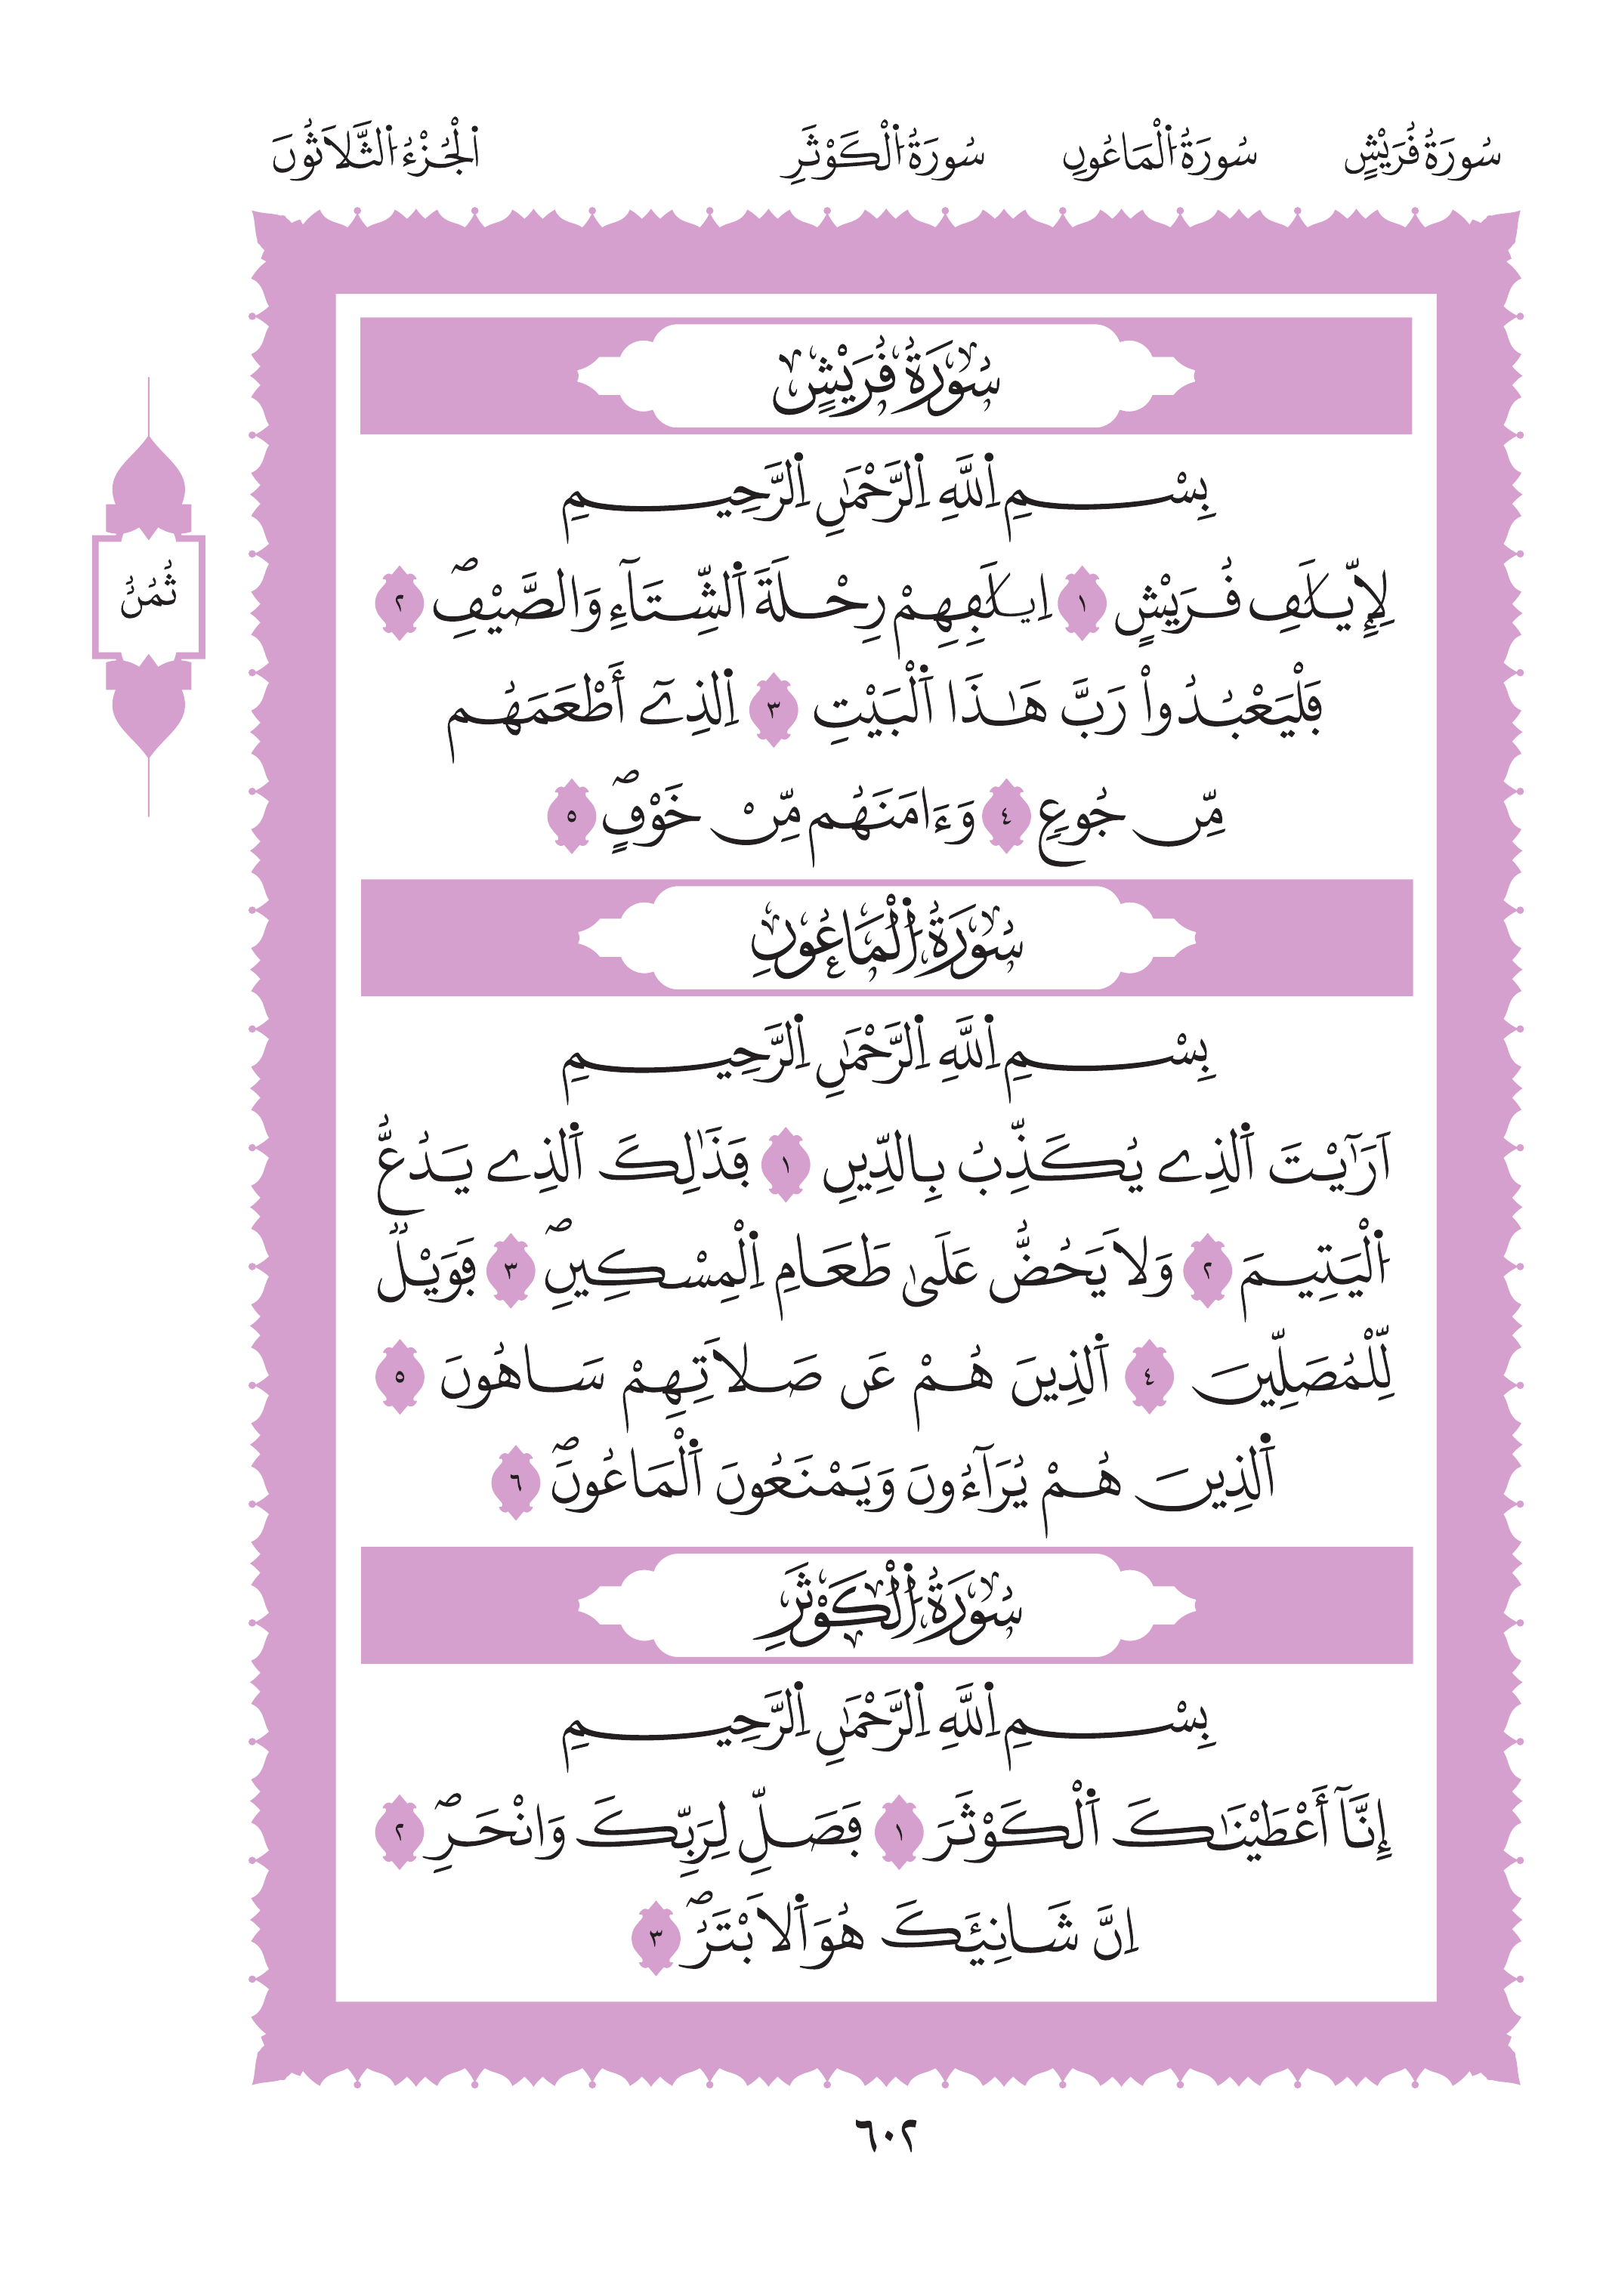 سُورَةُ قُرَيْشٍ سُورَةُ اُ۬لْمَاعُونِ سُورَةُ اُ۬لْكَوْثَرِ اَ۬لْجُزْءُ اُ۬لثَّلَاثُونَ
سُورَةُ قُرَيْشٍ
بِسْمِ اِ۬للَّهِ اِ۬لرَّحْمَٰنِ اِ۬لرَّحِيمِ
ثُمُنُ
لِإِيلَٰفِ قُرَيْشٍ ١ اِۦلَٰفِهِمْ رِحْلَةَ اَ۬لشِّتَآءِ وَالصَّيْفِۖ ٢
فَلْيَعْبُدُواْ رَبَّ هَٰذَا اَ۬لْبَيْتِ ٣ اِ۬لذِےٓ أَطْعَمَهُم
مِّن جُوعٍ ٤ وَءَامَنَهُم مِّنْ خَوْفٍۖ ٥
سُورَةُ اُ۬لْمَاعُونِ
بِسْمِ اِ۬للَّهِ اِ۬لرَّحْمَٰنِ اِ۬لرَّحِيمِ
اَرَٰٓيْتَ اَ۬لذِے يُكَذِّبُ بِالدِّينِ ١ فَذَٰلِكَ اَ۬لذِے يَدُعُّ
اُ۬لْيَتِيمَ ٢ وَلَا يَحُضُّ عَلَىٰ طَعَامِ اِ۬لْمِسْكِينِۖ ٣ فَوَيْلٞ
لِّلْمُصَلِّينَ ٤ اَ۬لذِينَ هُمْ عَن صَلَاتِهِمْ سَاهُونَ ٥
اَ۬لذِينَ هُمْ يُرَآءُونَ وَيَمْنَعُونَ اَ۬لْمَاعُونَۖ ٦
سُورَةُ اُ۬لْكَوْثَرِ
بِسْمِ اِ۬للَّهِ اِ۬لرَّحْمَٰنِ اِ۬لرَّحِيمِ
إِنَّآ أَعْطَيْنَٰكَ اَ۬لْكَوْثَرَ ١ فَصَلِّ لِرَبِّكَ وَانْحَرِۖ ٢
اِنَّ شَانِئَكَ هُوَ اَ۬لَابْتَرُۖ ٣
٦٠٢